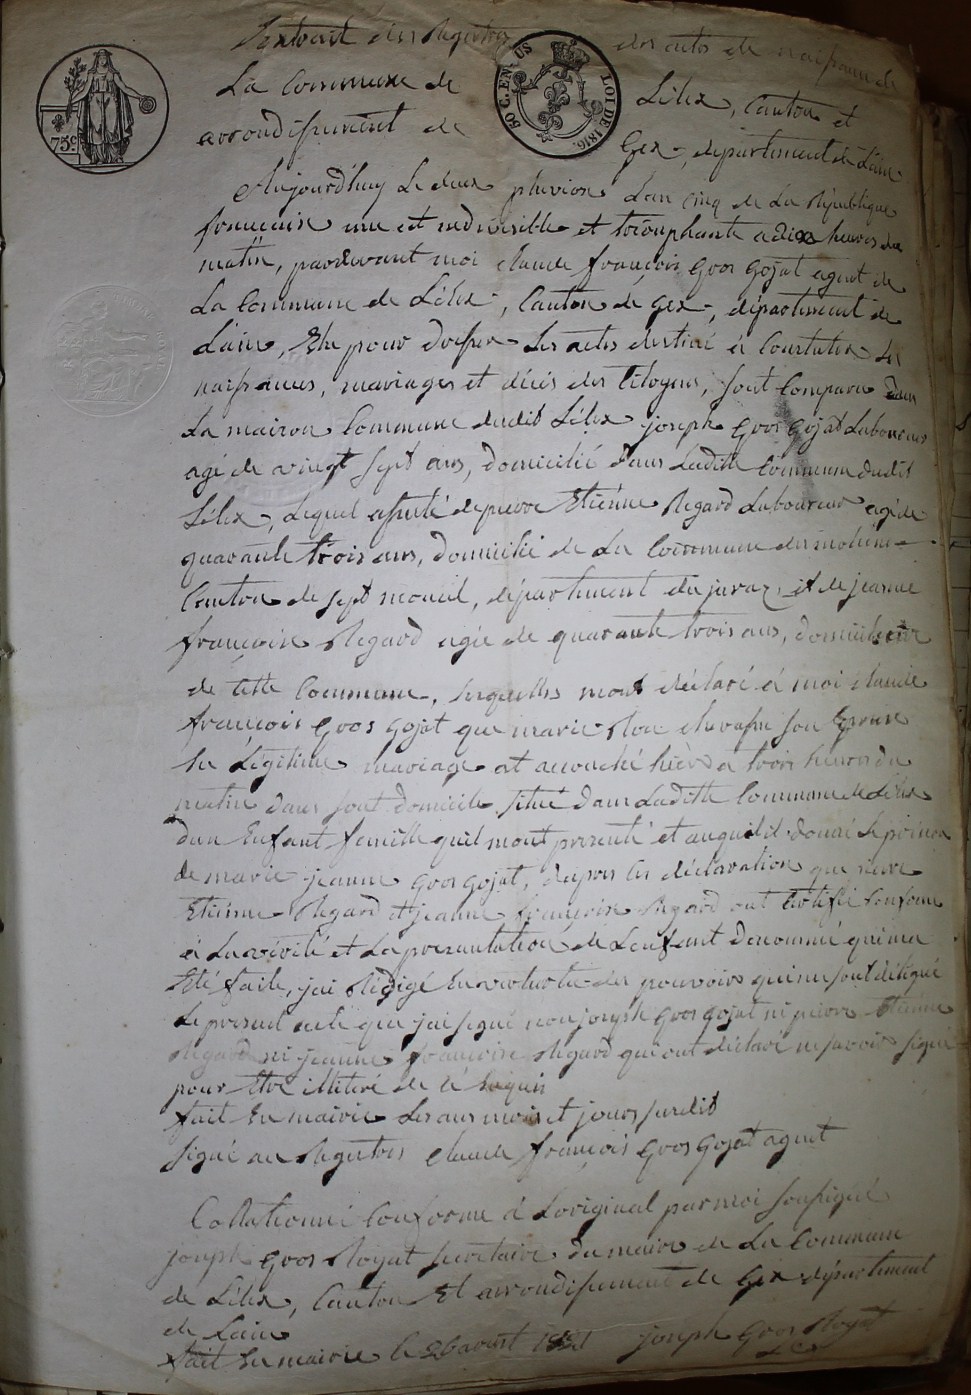 Extrait des Registres des actes de naissance de
La Commune de Lélex, Canton et
arrondissement de Gex, département de Lain
75c.
50 C. EN SUS
LOI DE 1816.
Aujourd'huy Le deux pluviose Lan cinq de La République
françaice une et indivisible et triomphante a dix heures du
matin, pardevant moi claude françois Gros Gojat agent de
La Commune de Lélex, Canton de Gex, département de
Lain, Elu pour dresser Les actes destiné à Constater Les
naissances, mariages et décés des Citoyens, sont Comparu dans
La maison Commune dudit Lélex joseph Gros Gojat Laboureur
agé de vingt sept ans, domicilié dans Ladite Commune dudit
Lélex, Lequel assisté de pierre Etienne Regard Laboureur agé de
quarante trois ans, domicilié de La Commune des molune
Canton de sept moncel, département du jura, et de jeanne
françoise Regard agée de quarante trois ans, domiciliée
de Cette Commune, Lesquelles mont déclaré à moi claude
françois Gros Gojat que marie Rose chevassu son Epouse
En Légitime mariage est accouché hièr à trois heures du
matin dans sont domicile situé dans Ladite Commune de Lélex
dun Enfant femelle quil mont presenté et auquel il donné Le prénon
de marie jeanne Gros gojat, dapres les déclaration que pierre
Etienne Regard et jeanne françoise Regard ont Certifié Conforme
à La vérité et La presentation de Lenfant dénommé qui ma
Eté faite, jai Rédigé En vertu des pouvoirs qui me sont délégué
Le present acte que jai signé non joseph Gros gojat ni pierre Etienne
Regard ni jeanne françoise Regard qui ont déclaré ne savoir signé
pour Etre illiteré de ce Requis
fait En mairie Les ans mois et jours susdit
signé au Registres claude françois Gros Gojat agent
Collationné Conforme à Loriginal par moi soussigné
joseph Gros Royat secretaire du maire de La Commune
de Lélex, Canton Et arrondissement de Gex département
de Lain
fait En mairie le 26 avost 1821 joseph Gros Royat